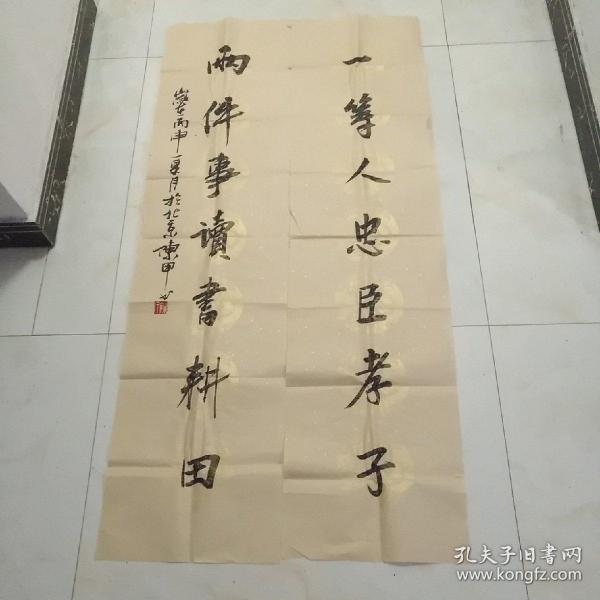 一等人忠臣孝子
兩件事讀書耕田
歲在丙申夏月於北京陳甲书
孔夫子旧書网
www.kongfz.com